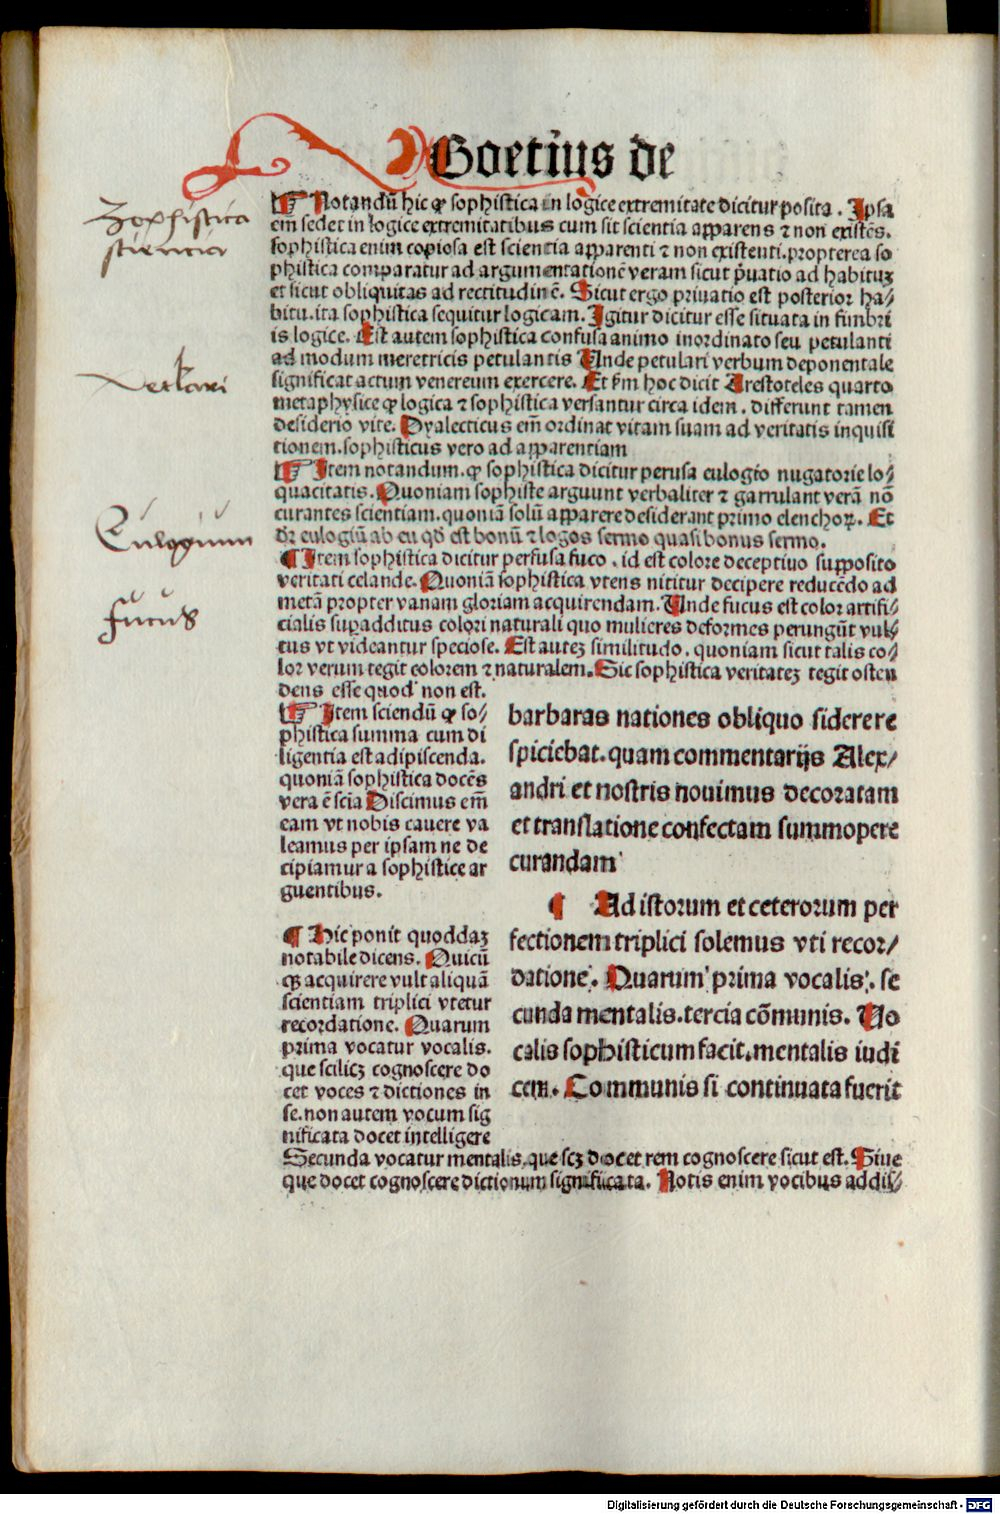 Boetius de
Notandū hic ꝙ sophistica in logice extremitate dicitur posita. Ipsa
em̄ sedet in logice extremitatibus cum sit scientia apparens ⁊ non existēs.
sophistica enim copiosa est scientia apparenti ⁊ non existenti. propterea so
phistica comparatur ad argumentationē veram sicut p̄uatio ad habituꝫ
et sicut obliquitas ad rectitudinē. Sicut ergo priuatio est posterior ha⸗
bitu. ita sophistica sequitur logicam. Igitur dicitur esse situata in fimbri
is logice. Est autem sophistica confusa animo inordinato seu petulanti
ad modum meretricis petulantis Unde petulari verbum deponentale
significat actum venereum exercere. Et ẜm hoc dicit Arestoteles quarto
metaphysice ꝙ logica ⁊ sophistica versantur circa idem. differunt tamen
desiderio vite. Dyalecticus em̄ ordinat vitam suam ad veritatis inquisi
tionem. sophisticus vero ad apparentiam
Item notandum. ꝙ sophistica dicitur perusa eulogio nugatorie lo⸗
quacitatis. Quoniam sophiste arguunt verbaliter ⁊ garrulant verā nō
curantes scientiam. quoniā solū apparere desiderant primo elenchoꝝ. Et
dr̄ eulogiū ab eu qd̄ est bonū ⁊ logos sermo quasi bonus sermo.
¶ Item sophistica dicitur perfusa fuco. id est colore deceptiuo supposito
veritati celande. Quoniā sophistica vtens nititur decipere reducēdo ad
metā propter vanam gloriam acquirendam. Unde fucus est color artifi⸗
cialis supadditus colori naturali quo mulieres deformes perungūt vul⸗
tus vt videantur speciose. Est auteꝫ similitudo. quoniam sicut talis co⸗
lor verum tegit colorem ⁊ naturalem. Sic sophistica veritateꝫ tegit osten
dens esse quod non est.
Item sciendū ꝙ so⸗
phistica summa cum di
ligentia est adipiscenda.
quoniā sophistica docēs
vera ē scīa Discimus em̄
eam vt nobis cauere va
leamus per ipsam ne de
cipiamur a sophistice ar
guentibus.
¶ Hic ponit quoddaꝫ
notabile dicens. Quicū
qꝫ acquirere vult aliquā
scientiam triplici vtetur
recordatione. Quarum
prima vocatur vocalis.
que scilicꝫ cognoscere do
cet voces ⁊ dictiones in
se. non autem vocum sig
nificata docet intelligere
barbaras nationes obliquo sidere re
spiciebat. quam commentarijs Alex⸗
andri et nostris nouimus decoratam
et translatione confectam summopere
curandam
¶ Ad istorum et ceterorum per
fectionem triplici solemus vti recor⸗
datione. Quarum prima vocalis. se
cunda mentalis. tercia cōmunis. Vo
calis sophisticum facit. mentalis iudi
cem. Communis si continuata fuerit
Secunda vocatur mentalis. que scꝫ docet rem cognoscere sicut est. Siue
que docet cognoscere dictionum significata. Notis enim vocibus addis⸗
Zophistica
sciencia
Eulogium
fucus
Digitalisierung gefördert durch die Deutsche Forschungsgemeinschaft - DFG